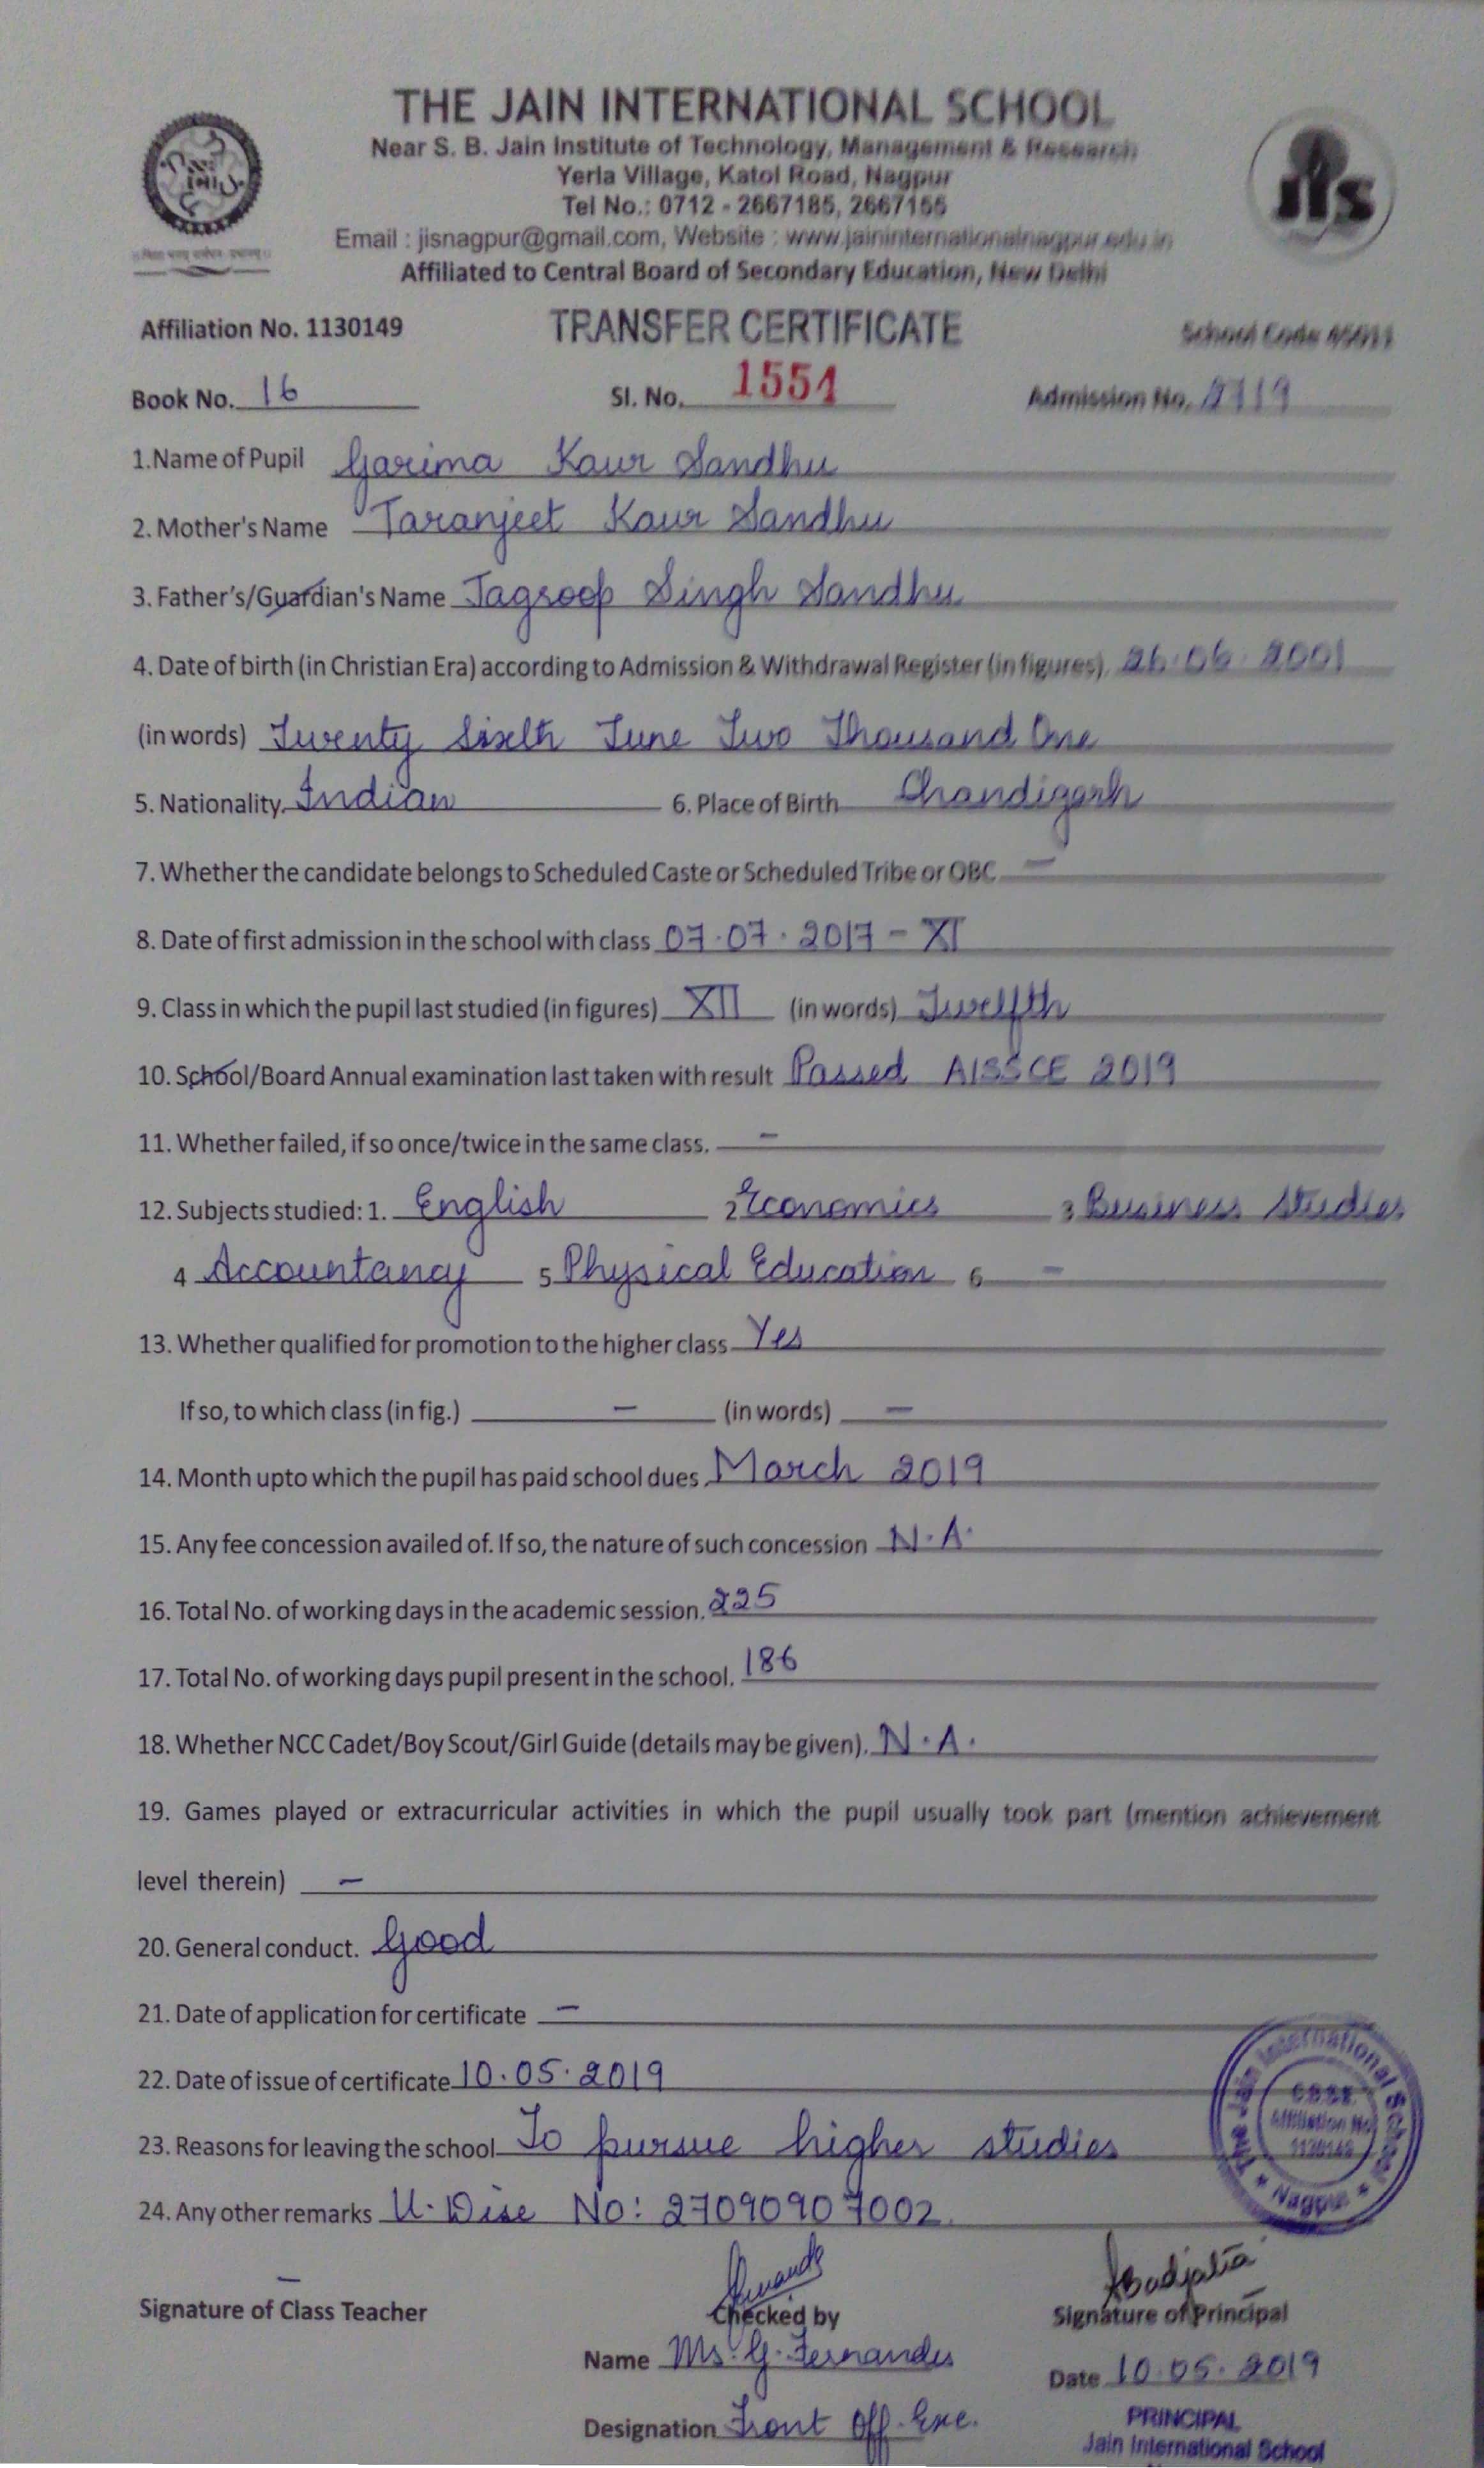 THE JAIN INTERNATIONAL SCHOOL
Near S. B. Jain Institute of Technology, Management & Research
Yerla Village, Katol Road, Nagpur
Tel No.: 0712 - 2667185, 2667155
Email : jisnagpur@gmail.com, Website : www.jaininternationalnagpur.edu.in
Affiliated to Central Board of Secondary Education, New Delhi
jis
Affiliation No. 1130149 TRANSFER CERTIFICATE School Code
Book No. 16 Sl. No. 1551 Admission No.
1.Name of Pupil Garima Kaur Sandhu
2. Mother's Name Taranjeet Kaur Sandhu
3. Father's/Guardian's Name Jagroop Singh Sandhu
4. Date of birth (in Christian Era) according to Admission & Withdrawal Register (in figures). 26.06.2001
(in words) Twenty Sixth June Two Thousand One
5. Nationality. Indian 6. Place of Birth Chandigarh
7. Whether the candidate belongs to Scheduled Caste or Scheduled Tribe or OBC -
8. Date of first admission in the school with class 07.07.2017 - XI
9. Class in which the pupil last studied (in figures) XII (in words) Twelfth
10. School/Board Annual examination last taken with result Passed AISSCE 2019
11. Whether failed, if so once/twice in the same class. -
12. Subjects studied: 1. English 2 Economics 3 Business Studies
4 Accountancy 5 Physical Education 6 -
13. Whether qualified for promotion to the higher class Yes
If so, to which class (in fig.) - (in words) -
14. Month upto which the pupil has paid school dues. March 2019
15. Any fee concession availed of. If so, the nature of such concession N.A.
16. Total No. of working days in the academic session. 225
17. Total No. of working days pupil present in the school. 186
18. Whether NCC Cadet/Boy Scout/Girl Guide (details may be given). N.A.
19. Games played or extracurricular activities in which the pupil usually took part (mention achievement
level therein) -
20. General conduct. Good
21. Date of application for certificate -
22. Date of issue of certificate 10.05.2019
23. Reasons for leaving the school To pursue higher studies
24. Any other remarks U-Dise No: 27090907002
The Jain International School
C.B.S.E.
Affiliation No.
1130149
* Nagpur *
-
Signature of Class Teacher Checked by Signature of Principal
Name Ms. G. Fernandes Date 10.05.2019
Designation Front Off. Exe.
PRINCIPAL
Jain International School